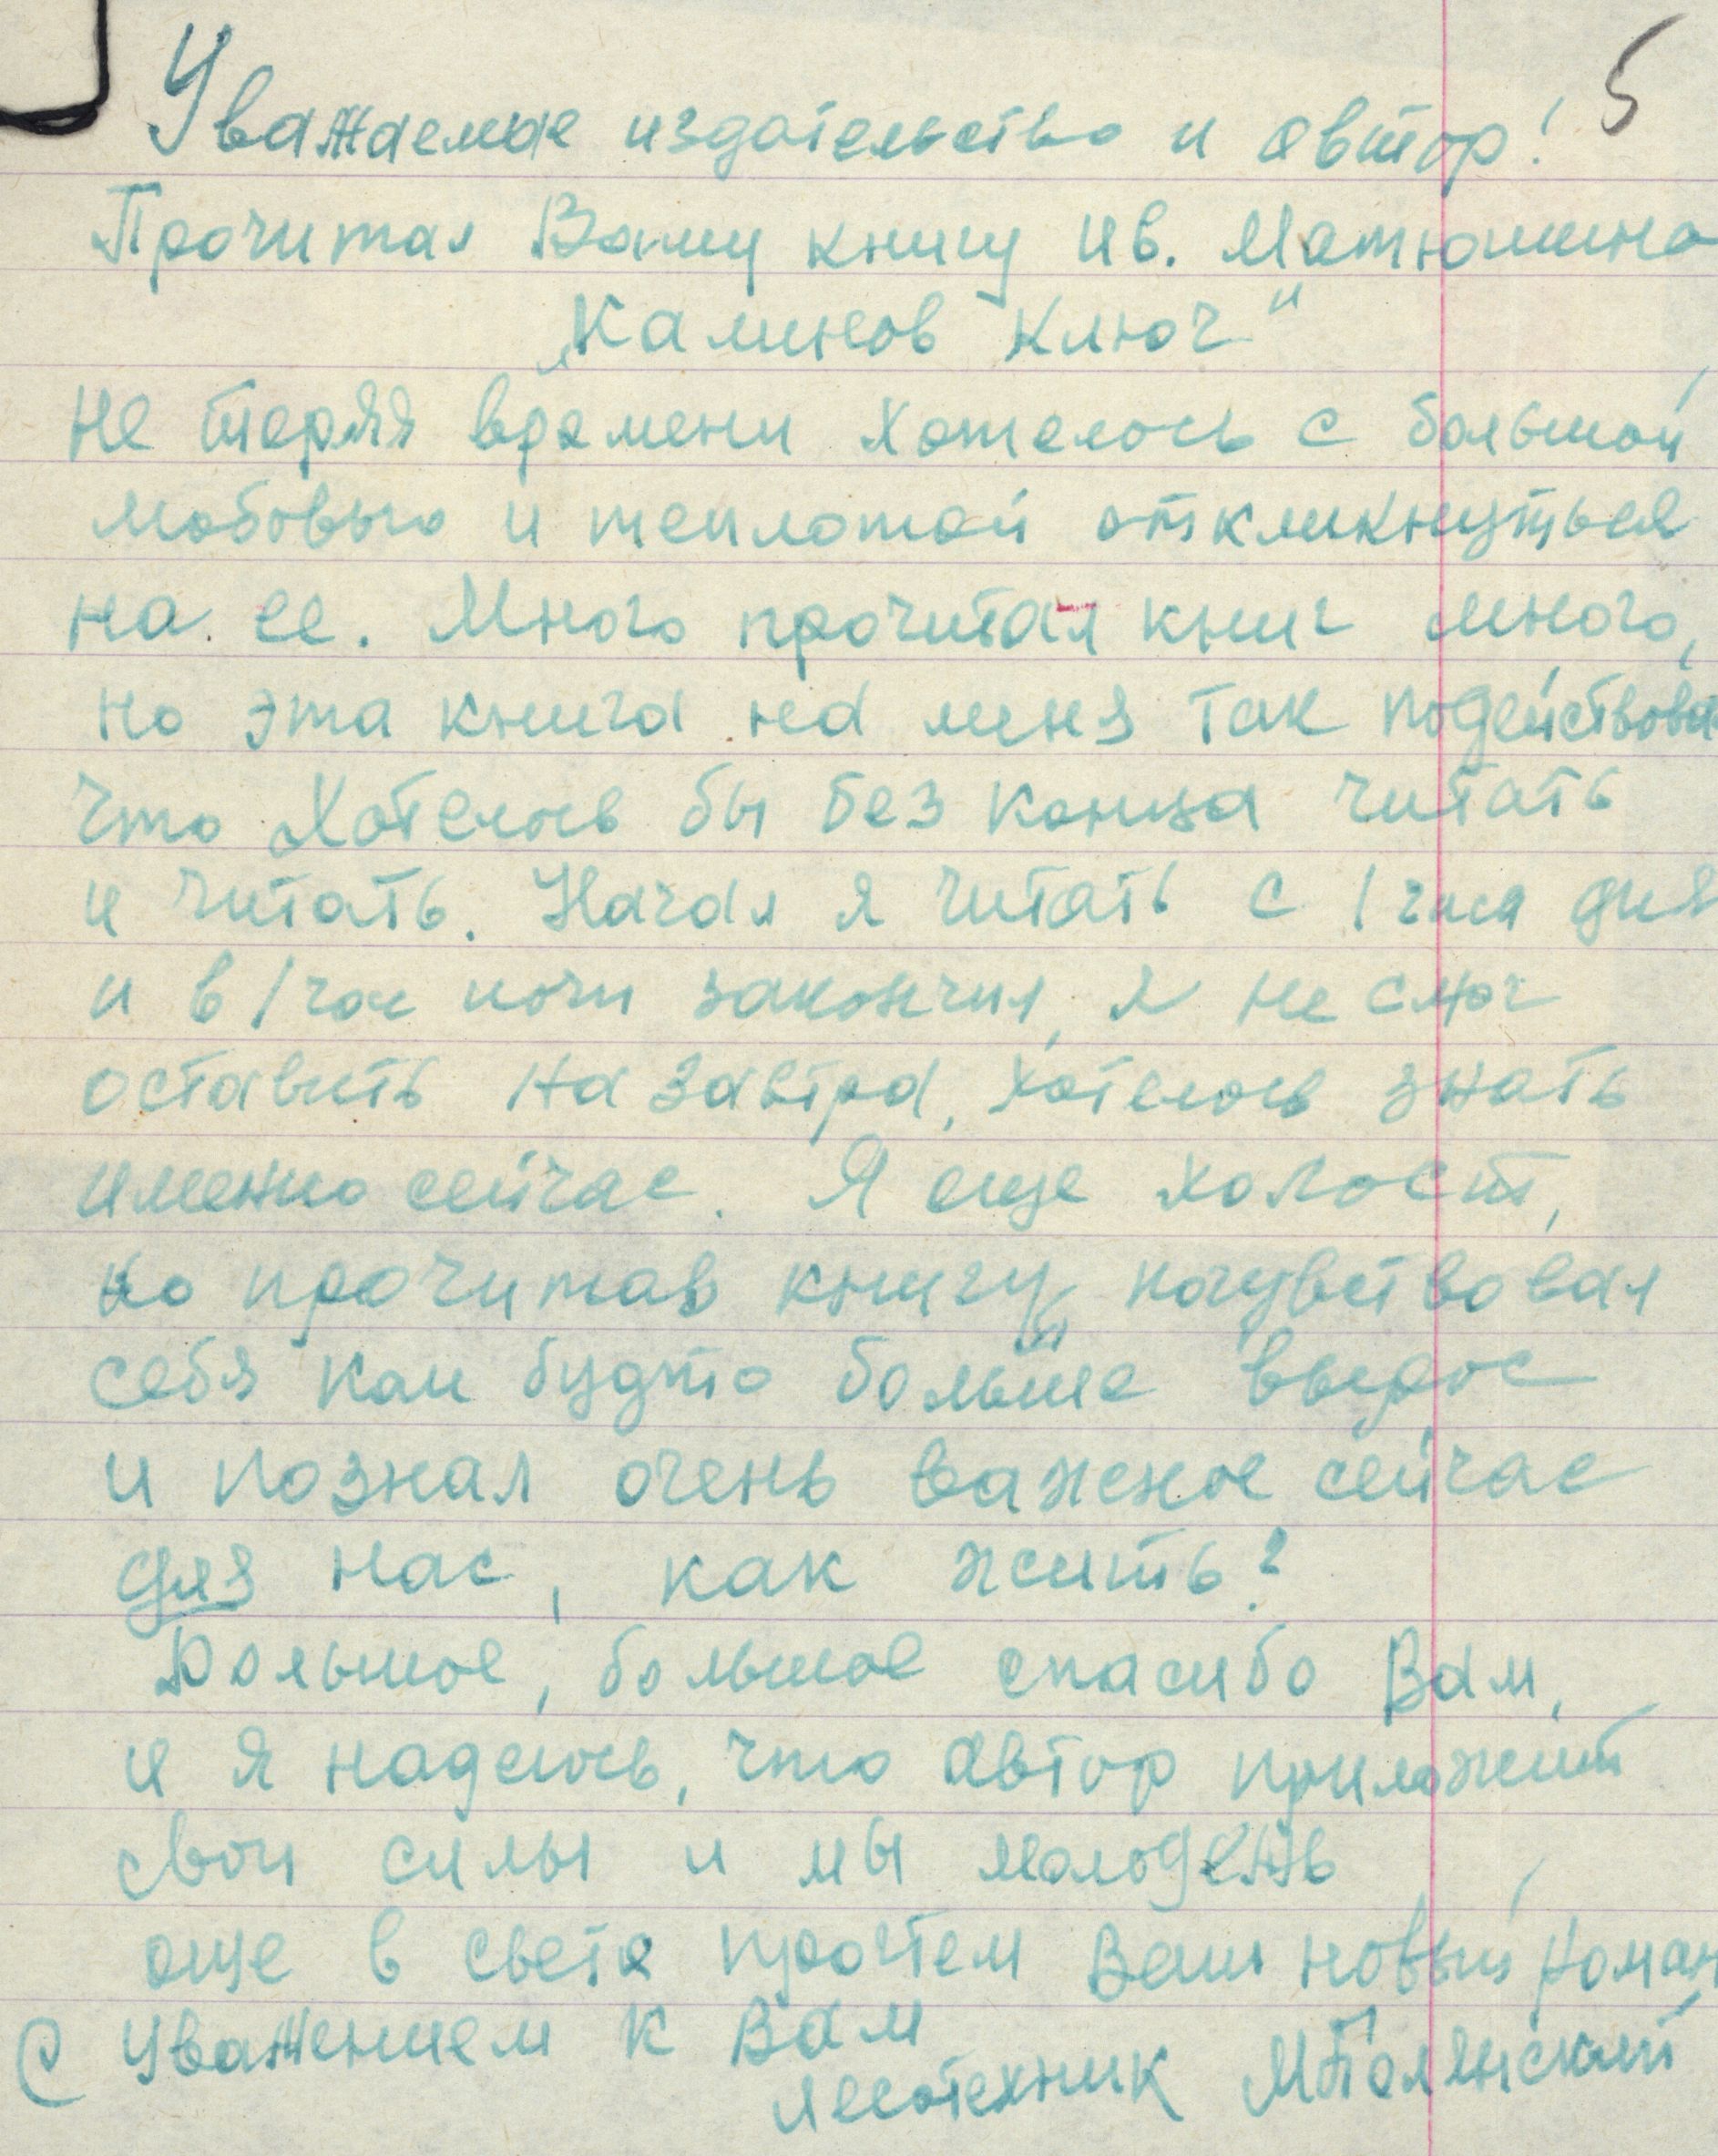 5
Уважаемое издательство и автор!
Прочитал Вашу книгу Ив. Матюшина
„Калинов Ключ"
Не теряя времени хотелось с большой
любовью и теплотой откликнуться
на ее. Много прочитал книг много,
но эта книга на меня так подействова
что хотелось бы без конца читать
и читать. Начал я читать с 1 часа дня
и в 1 час ночи закончил, я не смог
оставить на завтра, хотелось знать
именно сейчас. Я еще холост,
но прочитав книгу, почувствовал
себя как будто больше вырос
и познал очень важное сейчас
для нас, как жить?
Большое, большое спасибо Вам,
и я надеюсь, что автор приложит
свои силы и мы молодежь
еще в свете прочтем Ваш новый роман
С уважением к Вам
лесотехник МПолянский